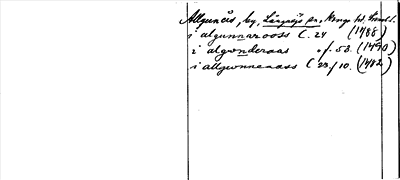 Allgunås, by, Långasjö sn, Konga hd, Smål.
i algunnarooss C. 24 (1488)
i algonderaas " f. 53. (1490)
i allgwnnenaass ( 23/10. (1482)